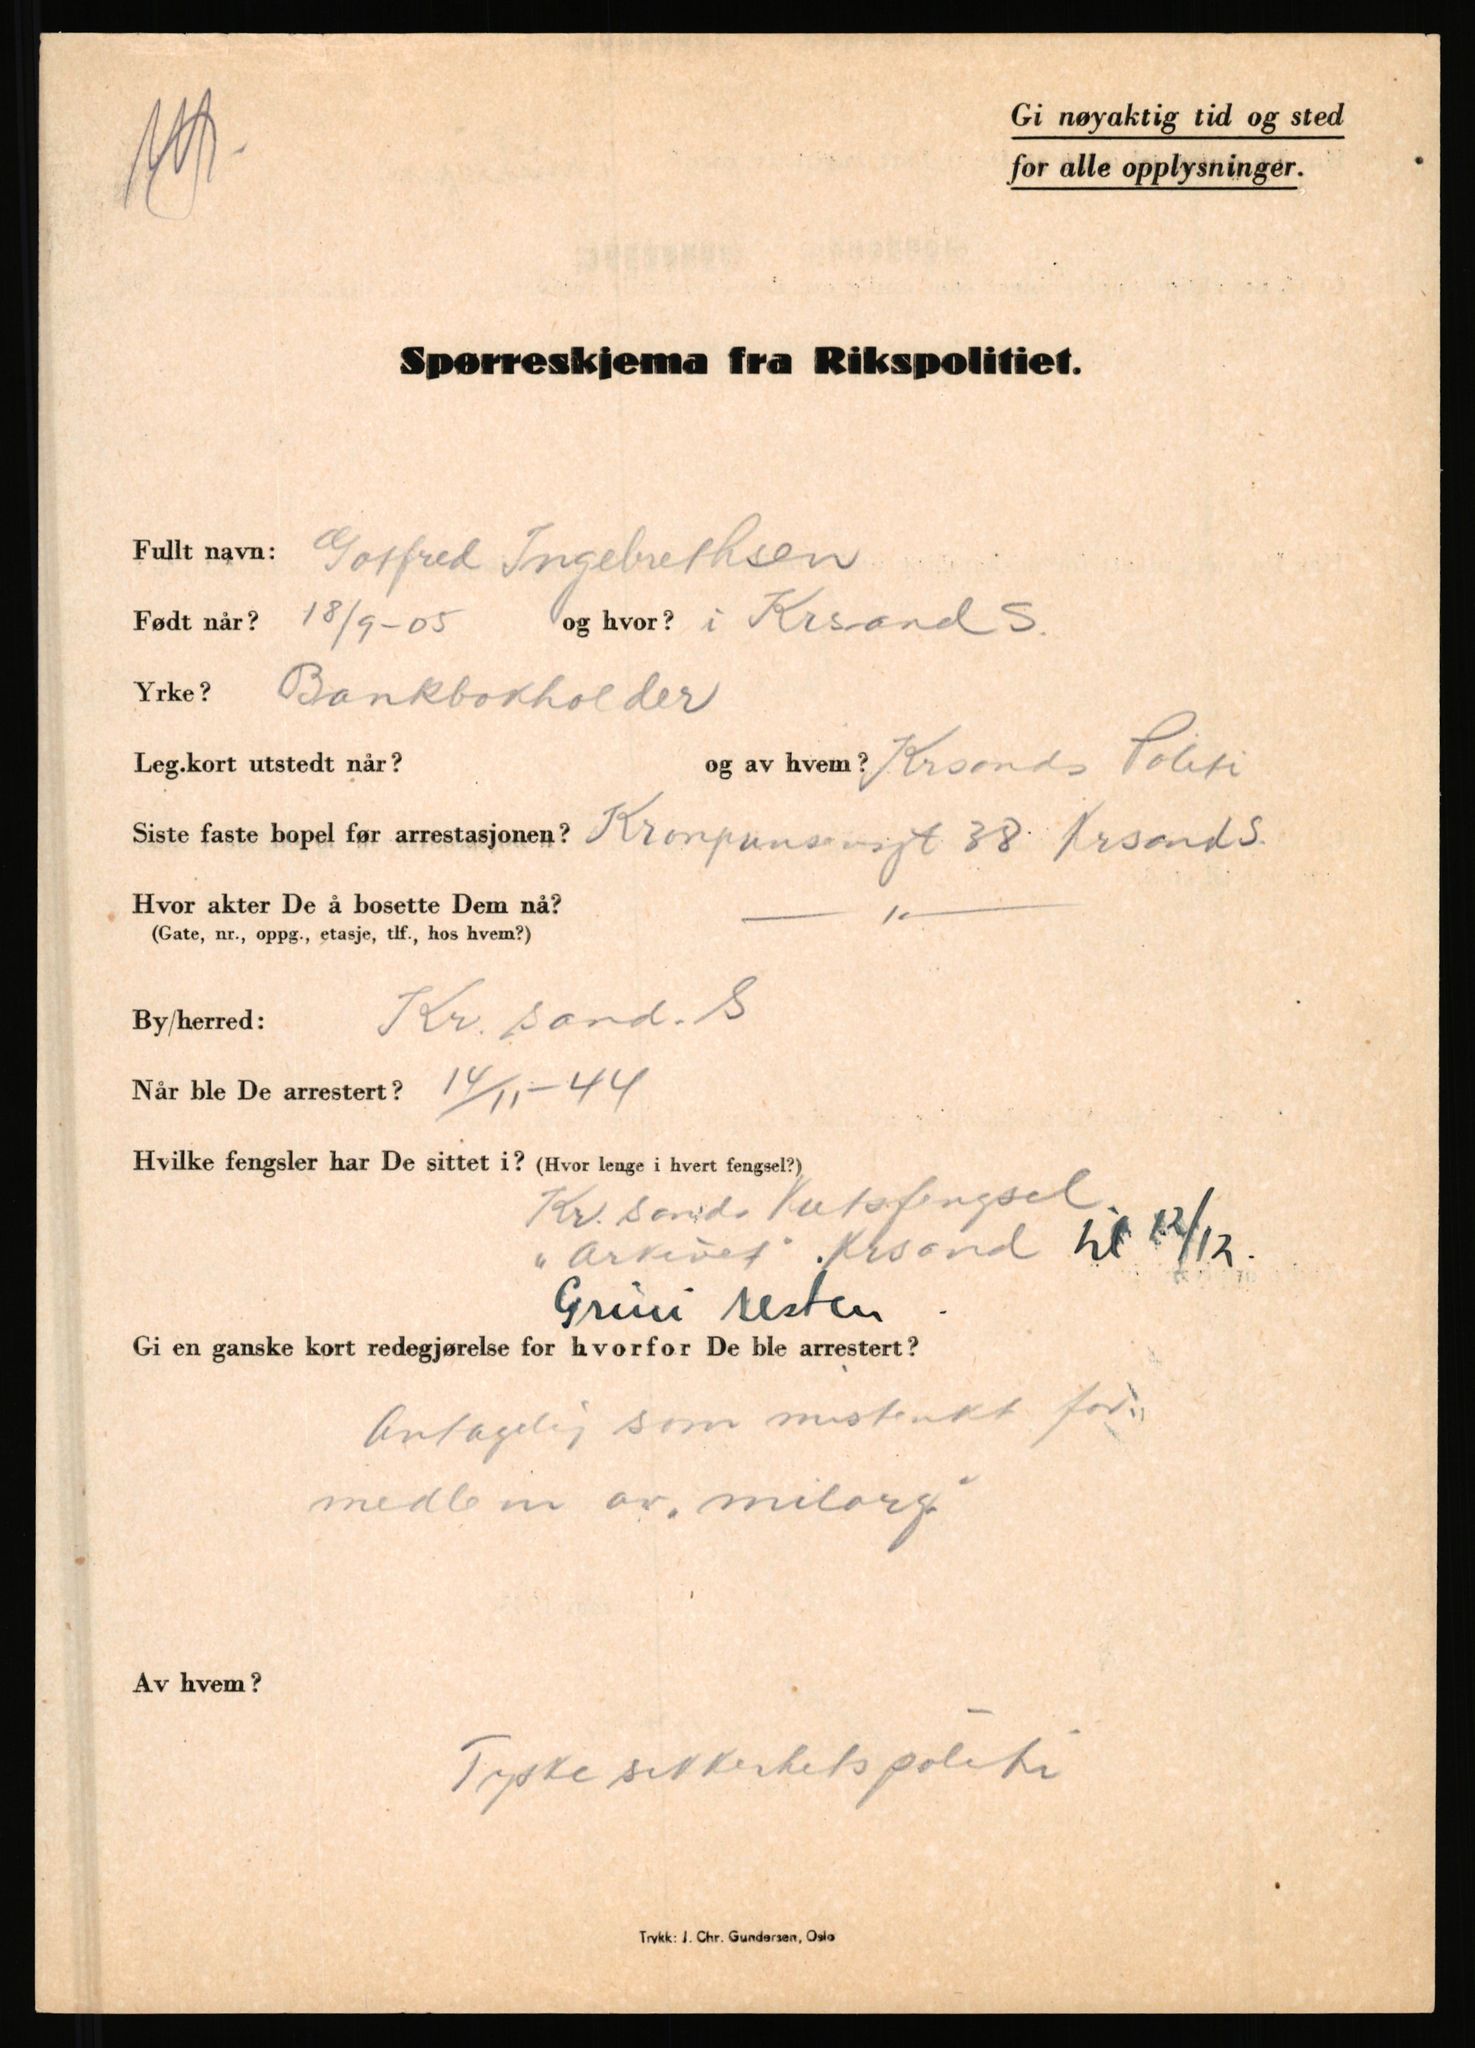 Gi nøyaktig tid og sted
for alle opplysninger.
Spørreskjema fra Rikspolitiet.
Fullt navn: Gotfred Ingebrethsen
Født når? 18/9-05 og hvor? i Krsand S.
Yrke? Bankbokholder
Leg.kort utstedt når? og av hvem? Krsands Politi
Siste faste bopel før arrestasjonen? 38 Krsand S.
Hvor akter De å bosette Dem nå? — " —
(Gate, nr., oppg., etasje, tlf., hos hvem?)
By/herred: Kr. sand. S
Når ble De arrestert? 14/11-44
Hvilke fengsler har De sittet i? (Hvor lenge i hvert fengsel?)
Kr. sands Kretsfengsel
"Arkivet" Krsand til 12/12.
Grini resten.
Gi en ganske kort redegjørelse for hvorfor De ble arrestert?
Antagelig som mistenkt for
medlem av "milorg"
Av hvem?
Tyske sikkerhetspoliti
Trykk: J. Chr. Gundersen, Oslo